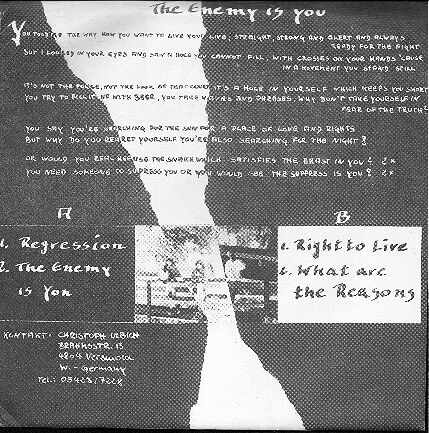 The Enemy is you
You told me the way how you want to live your live, straight, strong and alert and always
ready for the fight
But I looked in your eyes and saw a hole you cannot fill, with crosses on your hands 'cause
in a movement you stand still
It's not the force, not the look of that cover it's a hole in yourself which keeps you short
you try to fight me with words and phrases. Why don't take yourself in
"fear of the truth"
You say you're searching for the sun for a place of love and rights
But why do you regret yourself you're also searching for the night?
Or would you refuse the which satisfies the beast in you? 2x
you need someone to suppress you or you would see the suppress is you? 2x
A
B
1. Regression
2. The Enemy
is You
1. Right to Live
2. What are
the Reasons
Kontakt: Christoph Ulrich
Brahmsstr. 13
4804 Versmold
W.-Germany
Tel.: 05423/7228